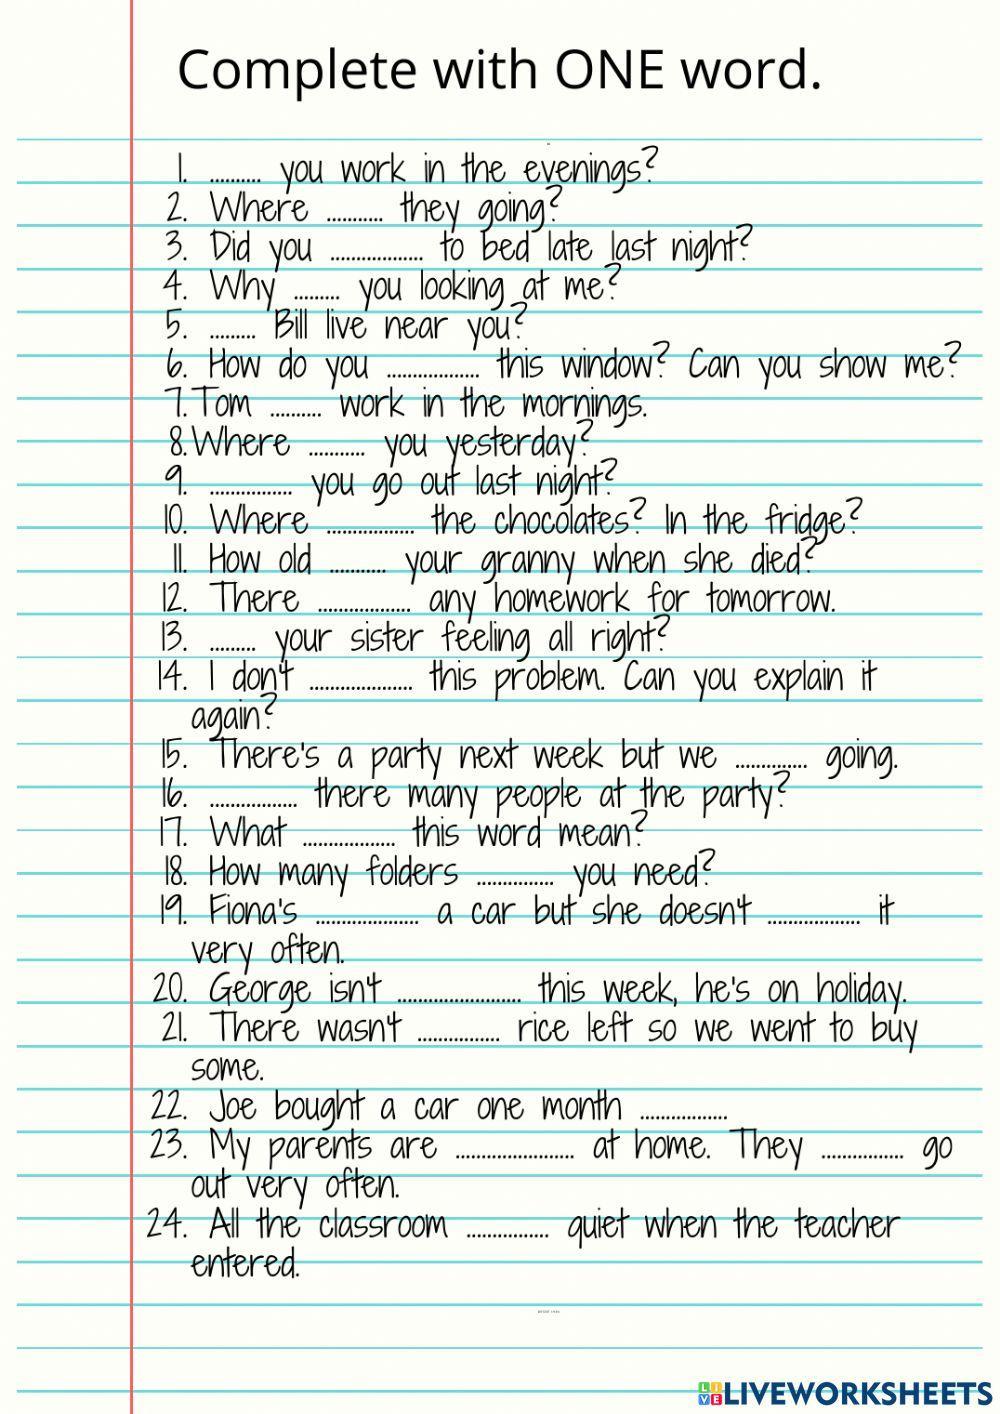 Complete with ONE word.
1. ......... you work in the evenings?
2. Where .......... they going?
3. Did you ................. to bed late last night?
4. Why ......... you looking at me?
5. ......... Bill live near you?
6. How do you ................. this window? Can you show me?
7. Tom ......... work in the mornings.
8. Where .......... you yesterday?
9. ............... you go out last night?
10. Where ............... the chocolates? In the fridge?
11. How old .......... your granny when she died?
12. There ................. any homework for tomorrow.
13. ......... your sister feeling all right?
14. I don't ................... this problem. Can you explain it
again?
15. There's a party next week but we ............. going.
16. ................ there many people at the party?
17. What ................. this word mean?
18. How many folders .............. you need?
19. Fiona's ................... a car but she doesn't ................. it
very often.
20. George isn't ....................... this week, he's on holiday.
21. There wasn't ............... rice left so we went to buy
some.
22. Joe bought a car one month ................
23. My parents are ...................... at home. They ............... go
out very often.
24. All the classroom ............... quiet when the teacher
entered.
LIVEWORKSHEETS